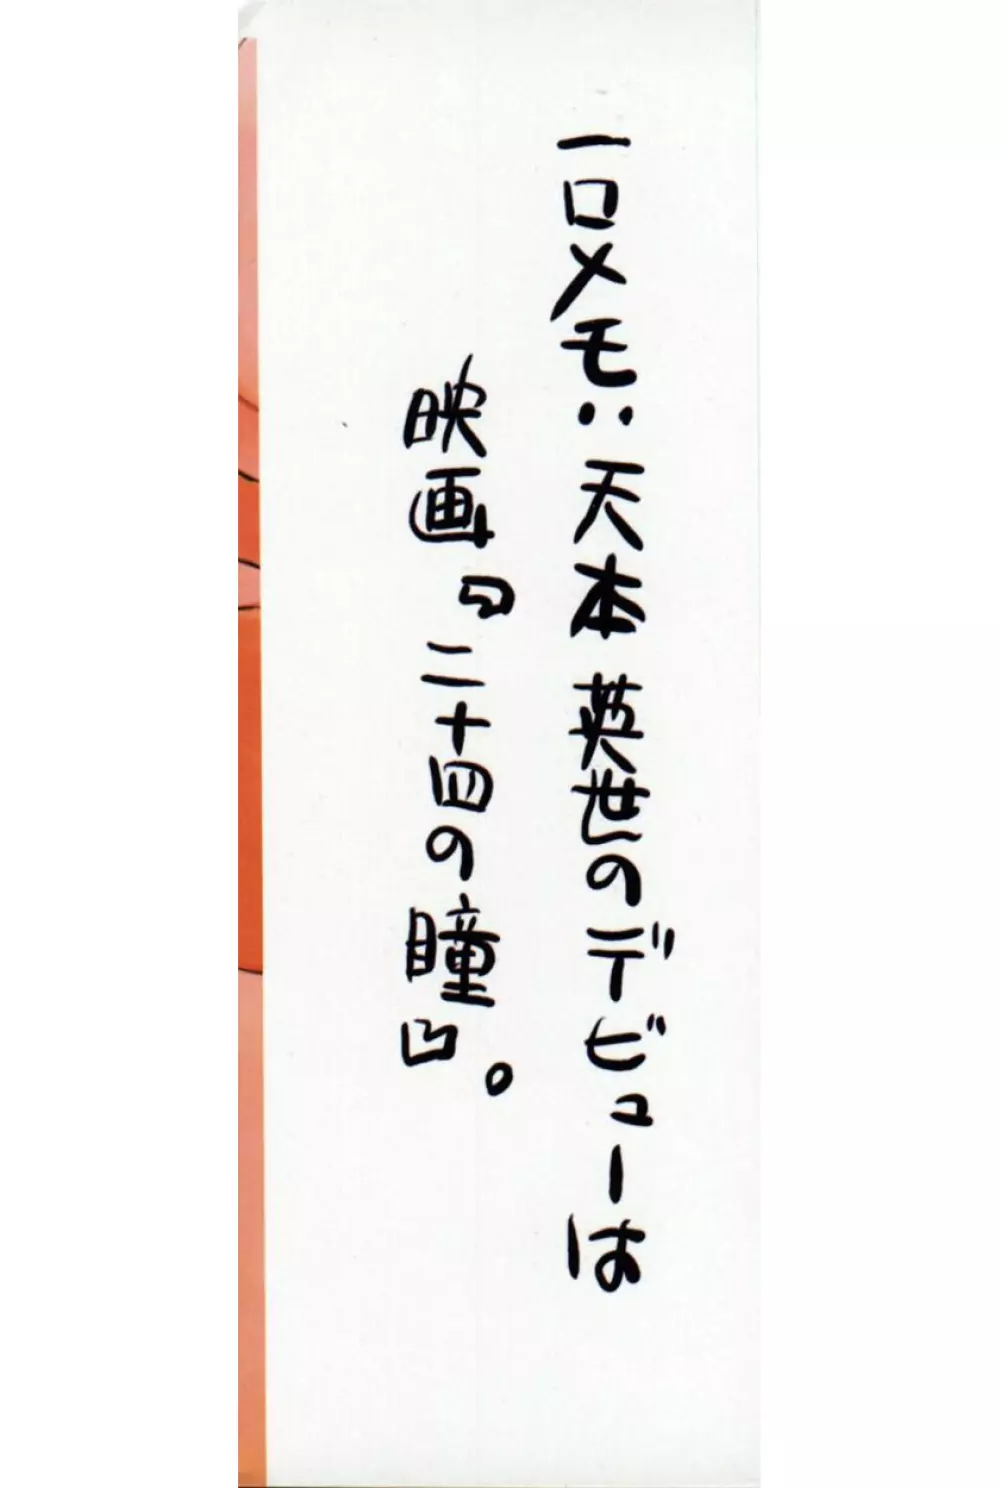 一口メモ：天本英世のデビューは
映画『二十四の瞳』。